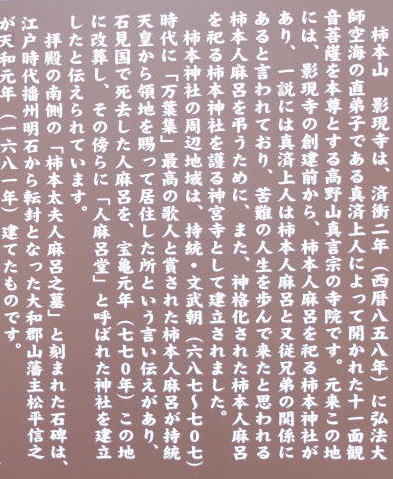 柿本山　影現寺は、済衡二年（西暦八五八年）に弘法大
師空海の直弟子である真済上人によって開かれた十一面観
音菩薩を本尊とする高野山真言宗の寺院です。元来この地
には、影現寺の創建前から、柿本人麻呂を祀る柿本神社が
あり、一説には真済上人は柿本人麻呂と又従兄弟の関係に
あると言われており、苦難の人生を歩んで来たと思われる
柿本人麻呂を弔うために、また、神格化された柿本人麻呂
を祀る柿本神社を護る神宮寺として建立されました。
柿本神社の周辺地域は、持統・文武朝（六八七～七〇七）
時代に「万葉集」最高の歌人と賞された柿本人麻呂が持統
天皇から領地を賜って居住した所という言い伝えがあり、
石見国で死去した人麻呂を、宝亀元年（七七０年）この地
に改葬し、その傍らに「人麻呂堂」と呼ばれた神社を建立
したと伝えられています。
拝殿の南側の「柿本太夫人麻呂之墓」と刻まれた石碑は、
江戸時代播州明石から転封となった大和郡山藩主松平信之
が天和元年（一六八一年）建てたものです。